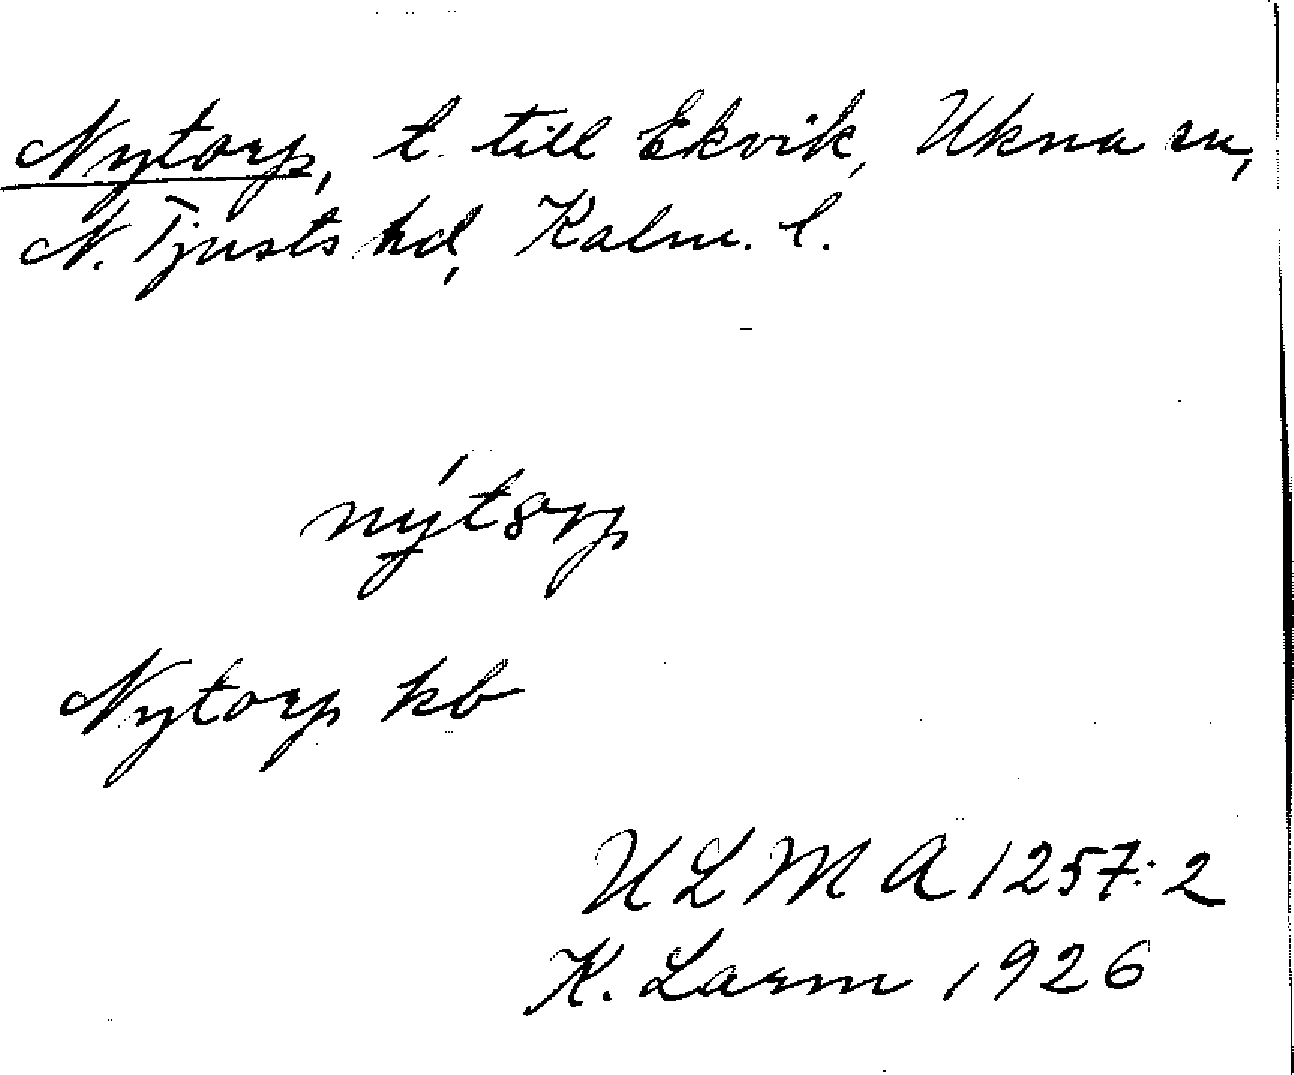 Nytorp, t. till Ekvik, Ukna sn,
N. Tjusts hd, Kalm. l.
nýtȣrp
Nytorp kb
ULMA 1257:2
K. Larm 1926